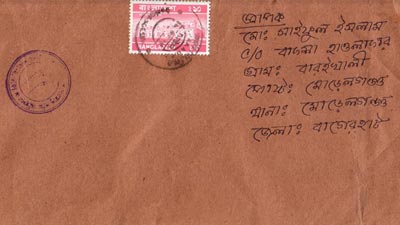 বাংলাদেশ
BANGLADESH
প্রাপক
মোঃ সাইফুল ইসলাম
C/O বাদসা হাওলাদার
গ্রামঃ বারইখালী
পোষ্টঃ মোড়েলগঞ্জ
থানাঃ মোড়েলগঞ্জ
জেলাঃ বাগেরহাট